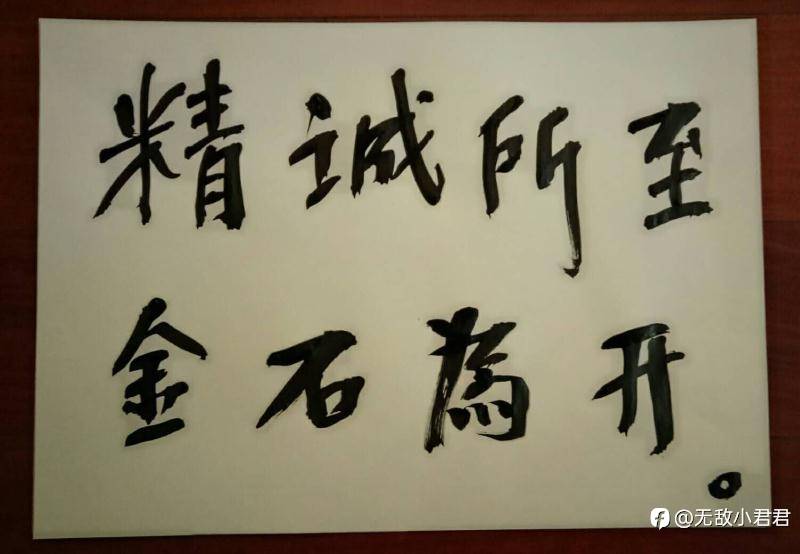 精诚所至
金石為开。
@无敌小君君